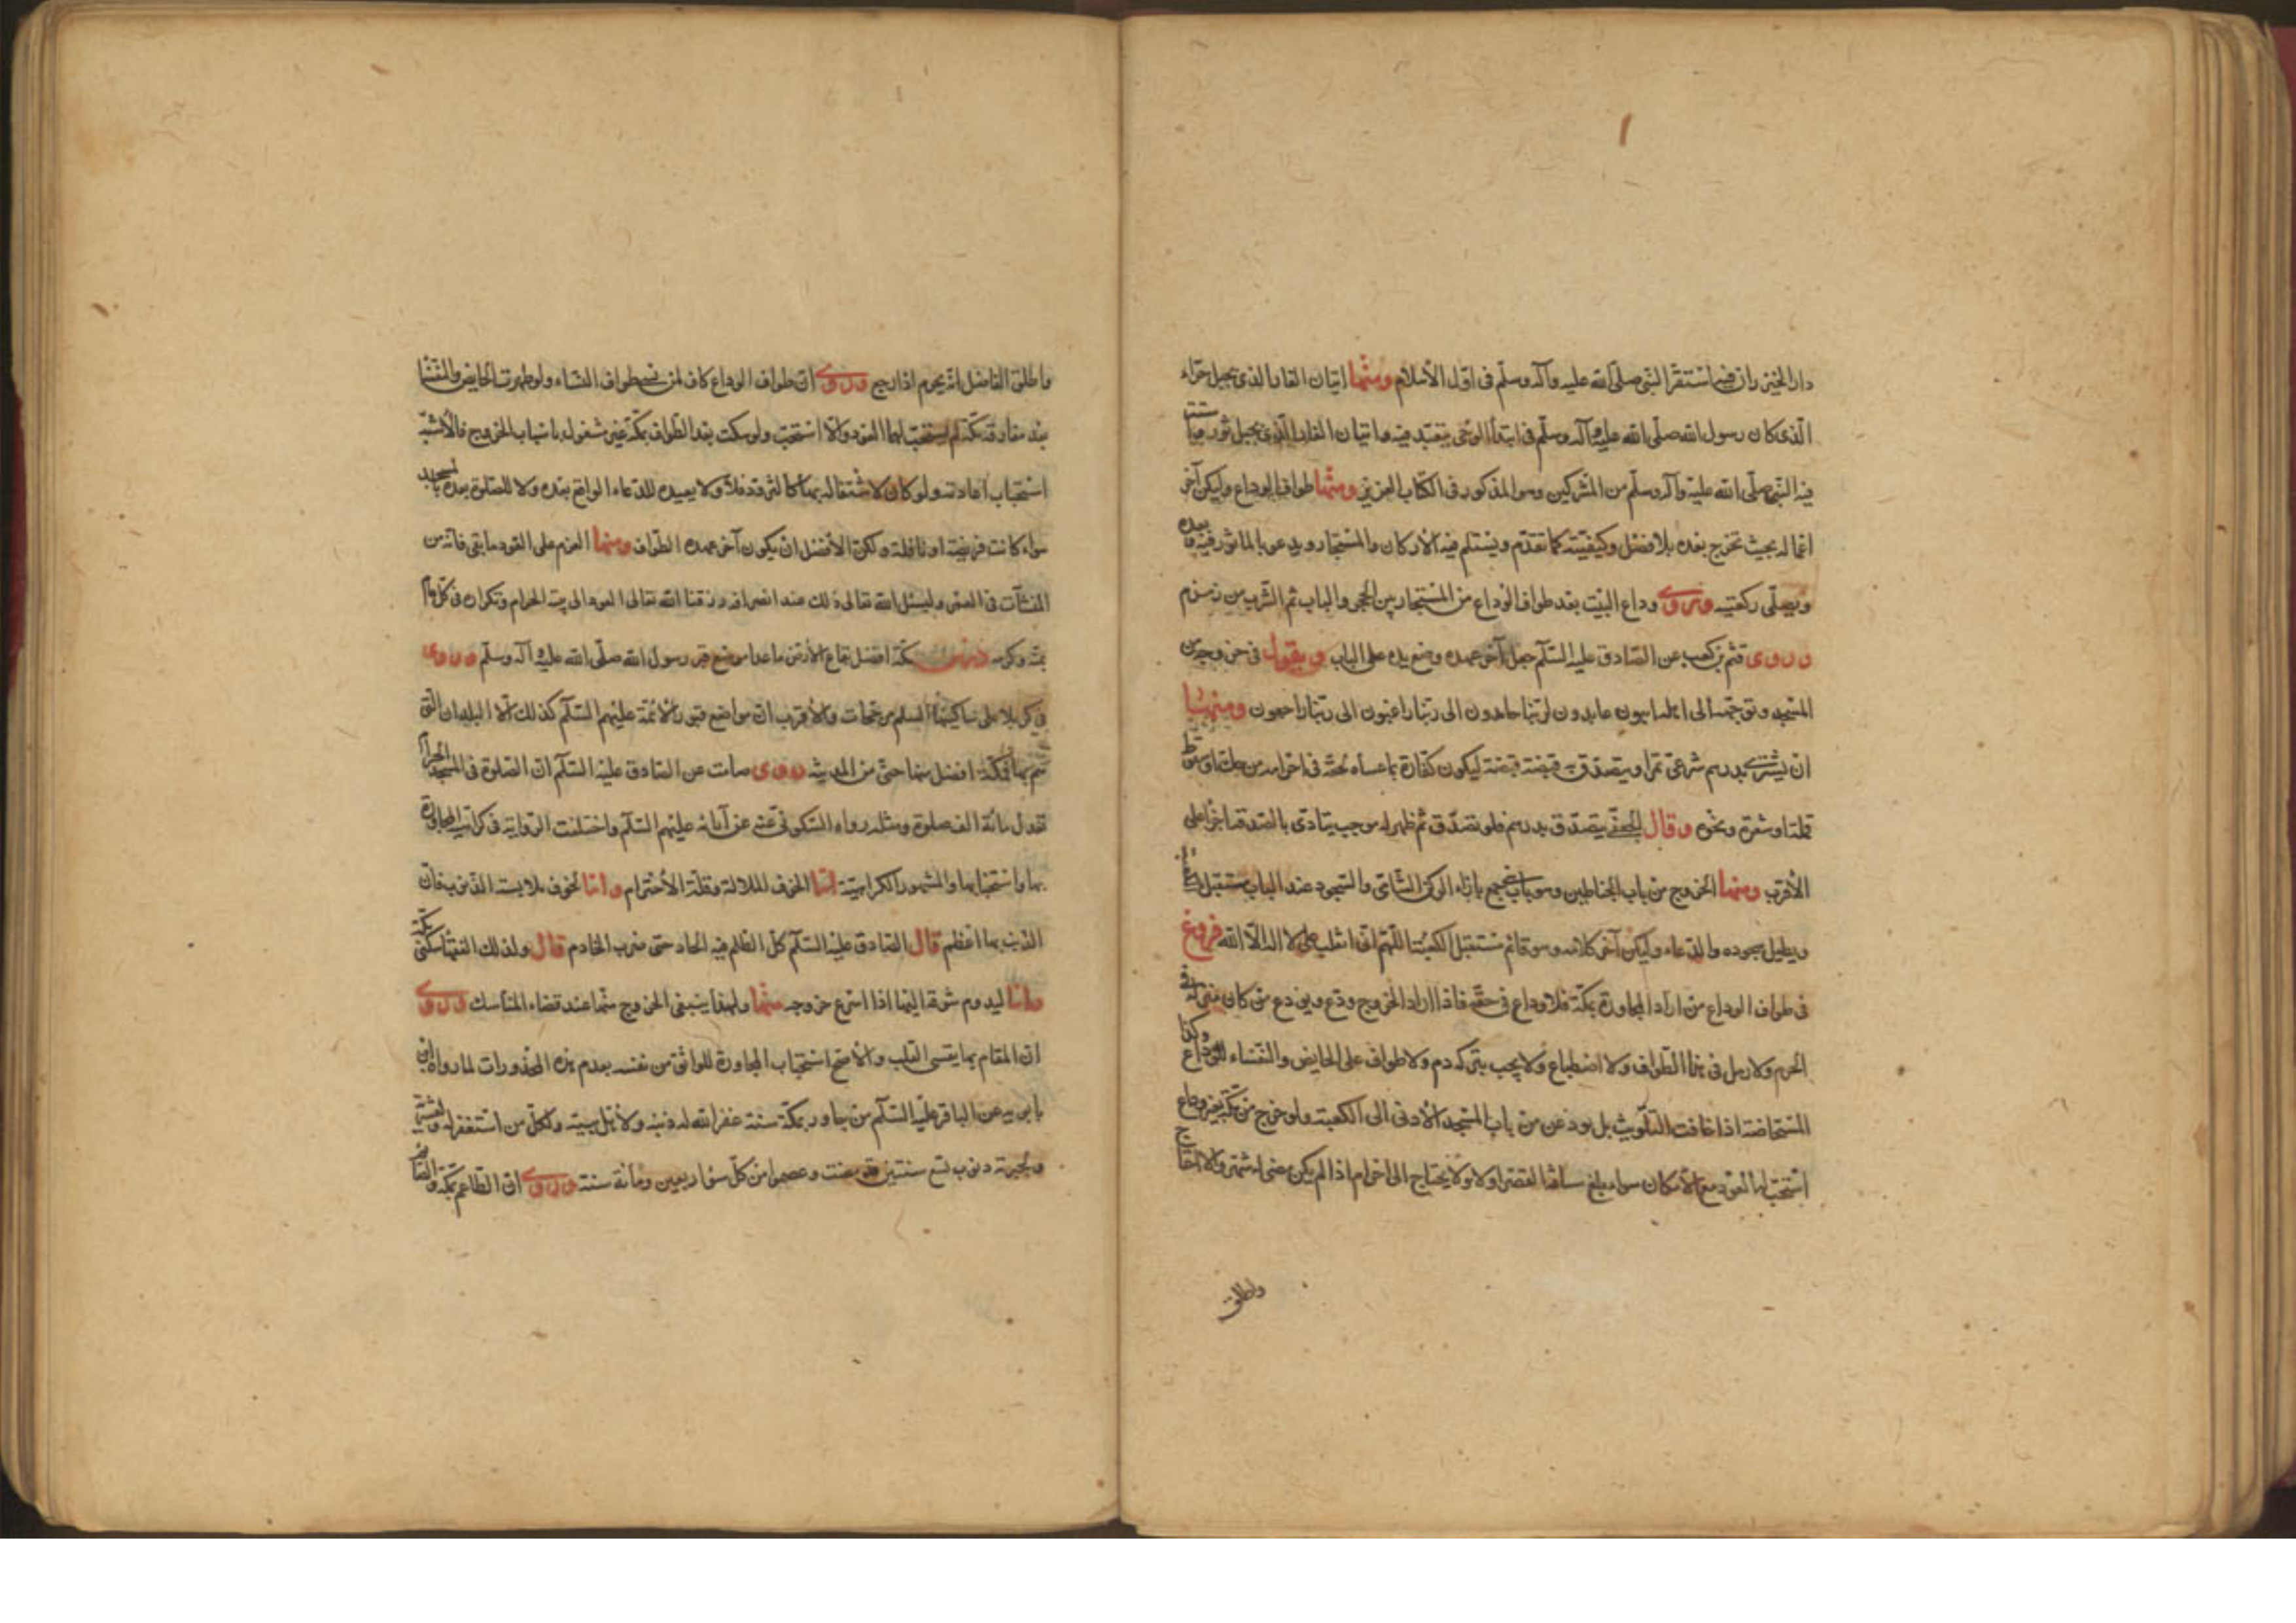 دار الخيزران فيها استقرّ النبي صلّى الله عليه وآله وسلّم فى اوّل الأسلام ومنها اتيان الغار الذى بجبل حراء
الّذى كان رسول الله صلّى الله عليه وآله وسلّم فى ابتدأ الوحى يتعبّد فيه واتيان الغار الّذى بجبل ثور
فيه النبى صلّى الله عليه وآله وسلّم من المشركين وهو المذكور فى الكتاب العزيز ومنها طواف الوداع وليكن آخر
اعماله بحيث تخرج بعده بلا فصل وكيفيّته كما تقدّم ويستلم فيه الأركان والمستجار ويدعو بالماثور فيه وبعده
ويصلّى ركعتيه وروى وداع البيت بعد طواف الوداع من المستجار بين الحجر والباب ثم الشرب من زمزم
وروى قثم بن كعب عن الصّادق عليه السّلم جعل آخر عهده وضع يده على الباب ويقول فى خروجه من
المسجد وتوجّهه الى اهله ايبون عابدون لربّنا حامدون الى ربّنا راغبون الى ربّنا راجعون ومنها
ان يشترى بدرهم شرعى تمرا ويتصدّق به قبضة قبضة ليكون كفّارة لما عساه لحقه فى احرامه من حكّ او سقوط
قملة او شعرة ونحوه وقال الجعفى يتصدّق بدرهم فلو تصدّق ثم ظهر له موجب يتادّى بالصدقة اجزأ على
الأقرب ومنها الخروج من باب الحناطين وهو باب بنى جمح بازاء الركن الشّامى والسّجود عند الباب مستقبل الكعبة
ويطيل سجوده والدّعاء وليكن آخر كلامه وهو قائم مستقبل الكعبة اللّهمّ انى انقلب على لا اله الّا الله فروع
فى طواف الوداع من اراد المجاورة بمكّة فلا وداع فى حقّه فاذا اراد الخروج ودّع ويودع من كان منزله فى
الحرم ولا رمل فى هذا الطّواف ولا اضطباع ولا يجب بتركه دم ولا طواف على الحايض والنفساء للوداع وكذا
المستحاضة اذا خافت التلويث بل تودعن من باب المسجد الأدنى الى الكعبة ولو خرج من مكّة بغير وداع
استحبّ له العود مع الأمكان سواء بلغ مسافة القصر او لا ولا يحتاج الى احرام اذا لم يكن مضى له شهر والا احتاج
واطلق
واطلق الفاضل انّه يحرم اذا رجع وروى انّ طواف الوداع كاف لمن نسى طواف النساء ولو طهرت الحايض والنفساء
بعد مفارقة مكّة لم يستحبّ لهما العود والّا استحبّ ولو مكث بعد الطّواف بمكّة غير مشغول باسباب الخروج فالأشبه
استحباب اعادته ولو كان لاشتغاله بها كالتزوّد فلا ولا يعيده للدّعاء الواقع بعده ولا للصلوة بعده بالمسجد
سواء كانت فريضة او نافلة ولكن الأفضل ان يكون آخر عهده الطّواف ومنها العزم على العود ما بقى فانّه من
المنسّآت فى العمر وليسئل الله تعالى ذلك عند انصرافه رزقنا الله تعالى العود الى بيته الحرام وتكراره فى كلّ عام
بمنّه وكرمه درس مكّة افضل بقاع الأرض ما عدا موضع قبر رسول الله صلّى الله عليه وآله وسلّم وروى
فى كربلا على ساكنها السلم مرجّحات والأقرب انّ مواضع قبور الأئمّة عليهم السّلم كذلك امّا البلدان التى
هم بها فمكّة افضل منها حتى من المدينة وروى صامت عن الصّادق عليه السّلم انّ الصّلوة فى المسجد الحرام
تعدل مائة الف صلوة ومثله رواه السّكونى عنه عن آبائه عليهم السّلم واختلفت الرّواية فى كراهية المجاورة
بها واستحبابها والمشهور الكراهيّة امّا الخوف الملالة وقلّة الأحترام وامّا لخوف ملابسة الذّنوب فانّ
الذّنب بها اعظم قال الصّادق عليه السّلم كلّ الظلم فيه الحاد حتى ضرب الخادم قال ولذلك الفقها سكنى مكّة
وامّا ليدوم شوقه اليها اذا اسرع خروجه منها ولهذا ينبغى الخروج منها عند قضاء المناسك وروى
انّ المقام بها يقسى القلب والأصح استحباب المجاورة للواثق من نفسه بعدم هذه المحذورات لما رواه ابن
بابويه عن الباقر عليه السّلم من جاور بمكّة سنة غفر الله له ذنبه ولأهل بيته ولكلّ من استغفر له ولعشيرته
ولجيرته ذنوب تسع سنين قد مضت وعصموا من كلّ سوء اربعين ومائة سنة وروى انّ الطّاعم بمكّة